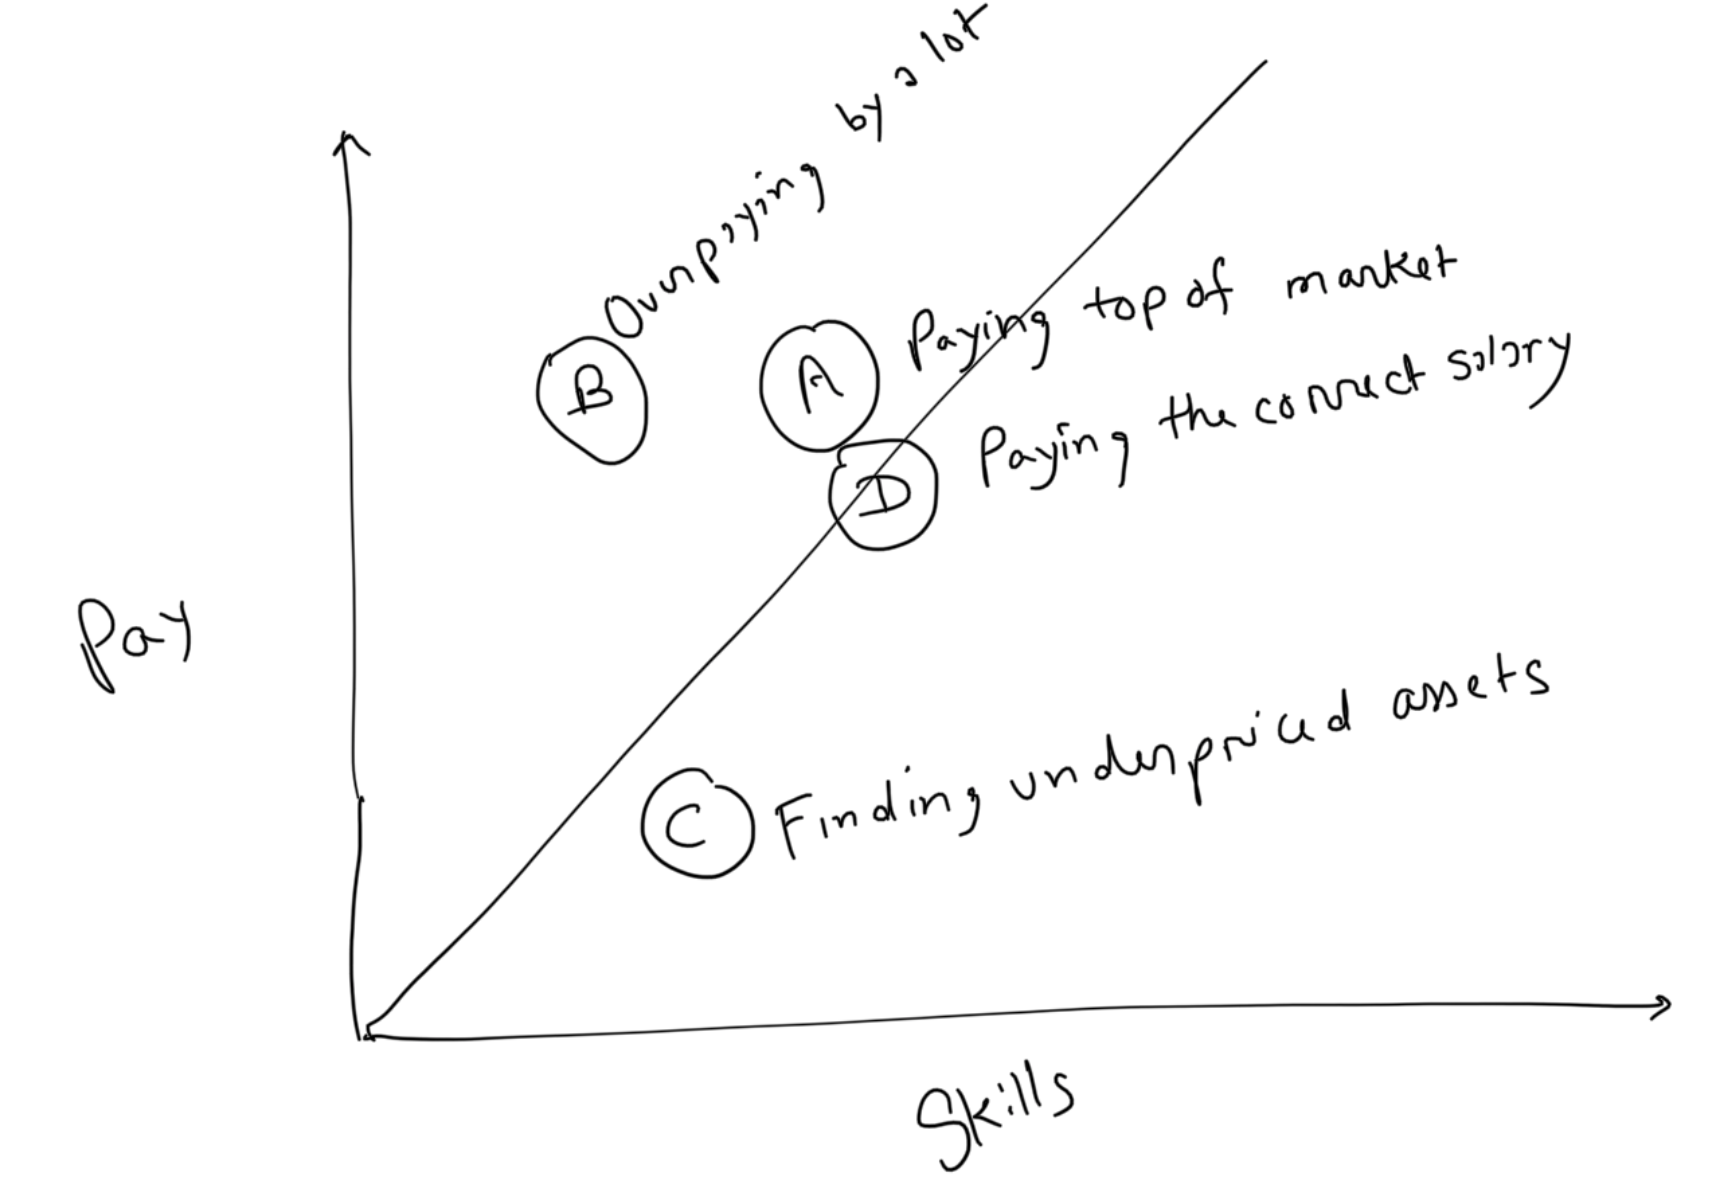 Overpaying by a lot
B
A
Paying top of market
D
Paying the correct salary
Pay
C
Finding underpriced assets
Skills